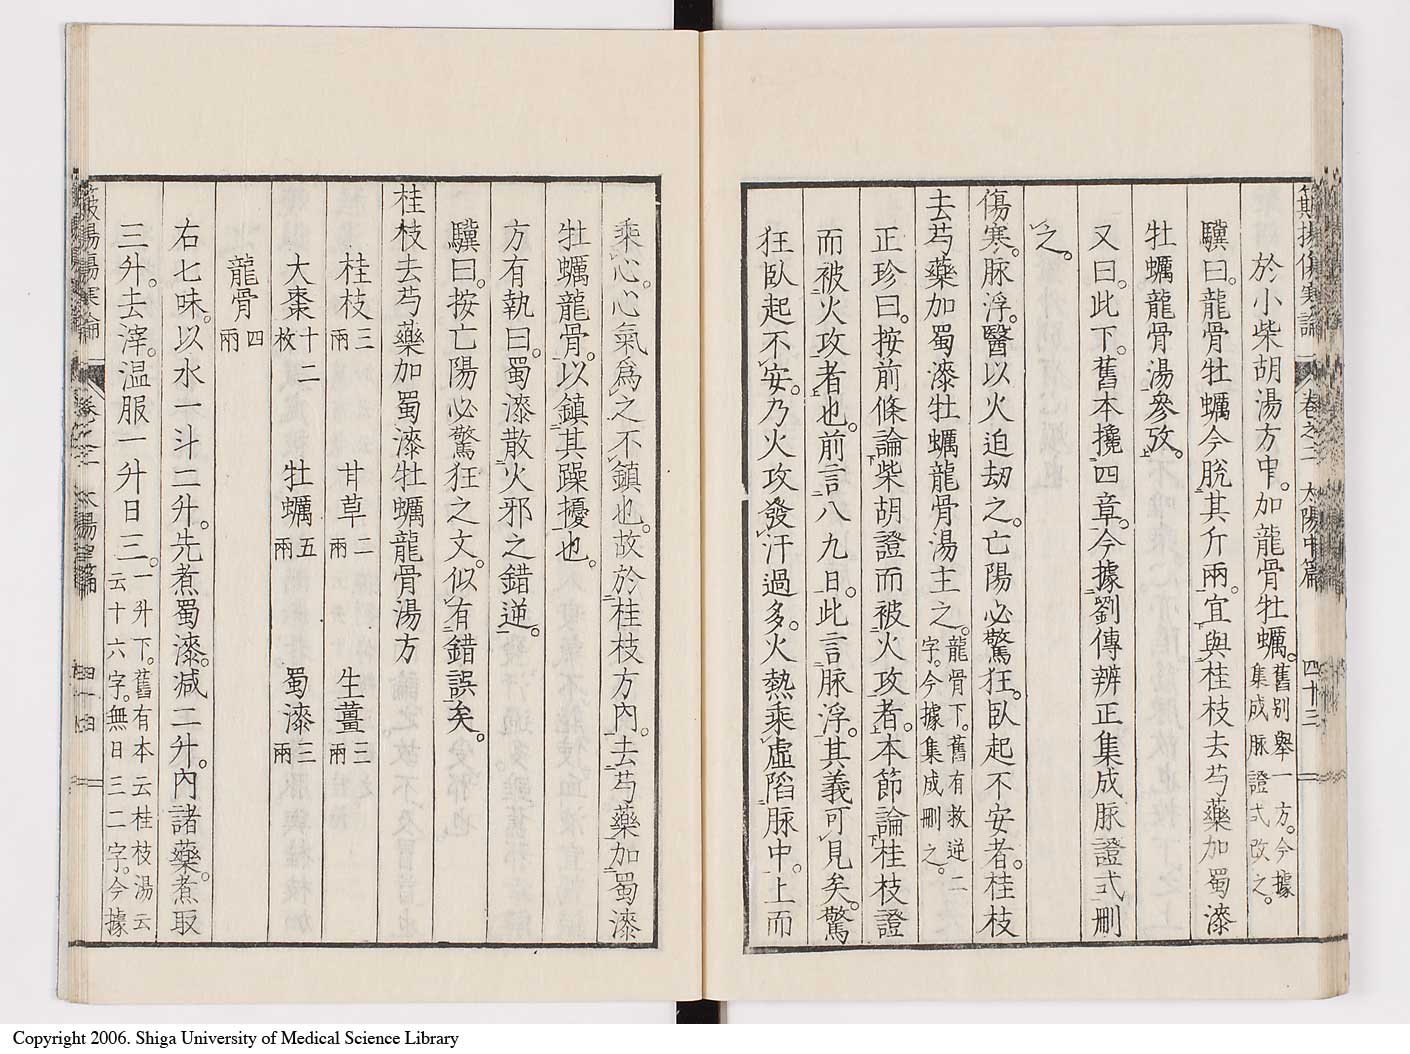 於小柴胡湯方中。加龍骨牡蠣。舊別舉一方。今據集成脈證式改之。
驥曰。龍骨牡蠣今脫其斤兩。宜與桂枝去芍藥加蜀漆
牡蠣龍骨湯參攷。
又曰。此下。舊本攙四章。今據劉傳辨正集成脈證式刪
之。
傷寒。脈浮。醫以火迫劫之。亡陽必驚狂。臥起不安者。桂枝
去芍藥加蜀漆牡蠣龍骨湯主之。龍骨下。舊有救逆二字。今據集成刪之。
正珍曰。按前條論柴胡證而被火攻者。本節論桂枝證
而被火攻者也。前言八九日。此言脈浮。其義可見矣。驚
狂臥起不安。乃火攻發汗過多。火熱乘虛陷脈中。上而
乘心。心氣爲之不鎮也。故於桂枝方內。去芍藥加蜀漆
牡蠣龍骨。以鎮其躁擾也。
方有執曰。蜀漆散火邪之錯逆。
驥曰。按亡陽必驚狂之文。似有錯誤矣。
桂枝去芍藥加蜀漆牡蠣龍骨湯方
桂枝三兩 甘草二兩 生薑三兩
大棗十二枚 牡蠣五兩 蜀漆三兩
龍骨四兩
右七味。以水一斗二升。先煮蜀漆。減二升。內諸藥。煮取
三升。去滓。温服一升日三。一升下。舊有本云桂枝湯云云十六字。無日三二字。今據
卷之二 太陽中篇 四十三